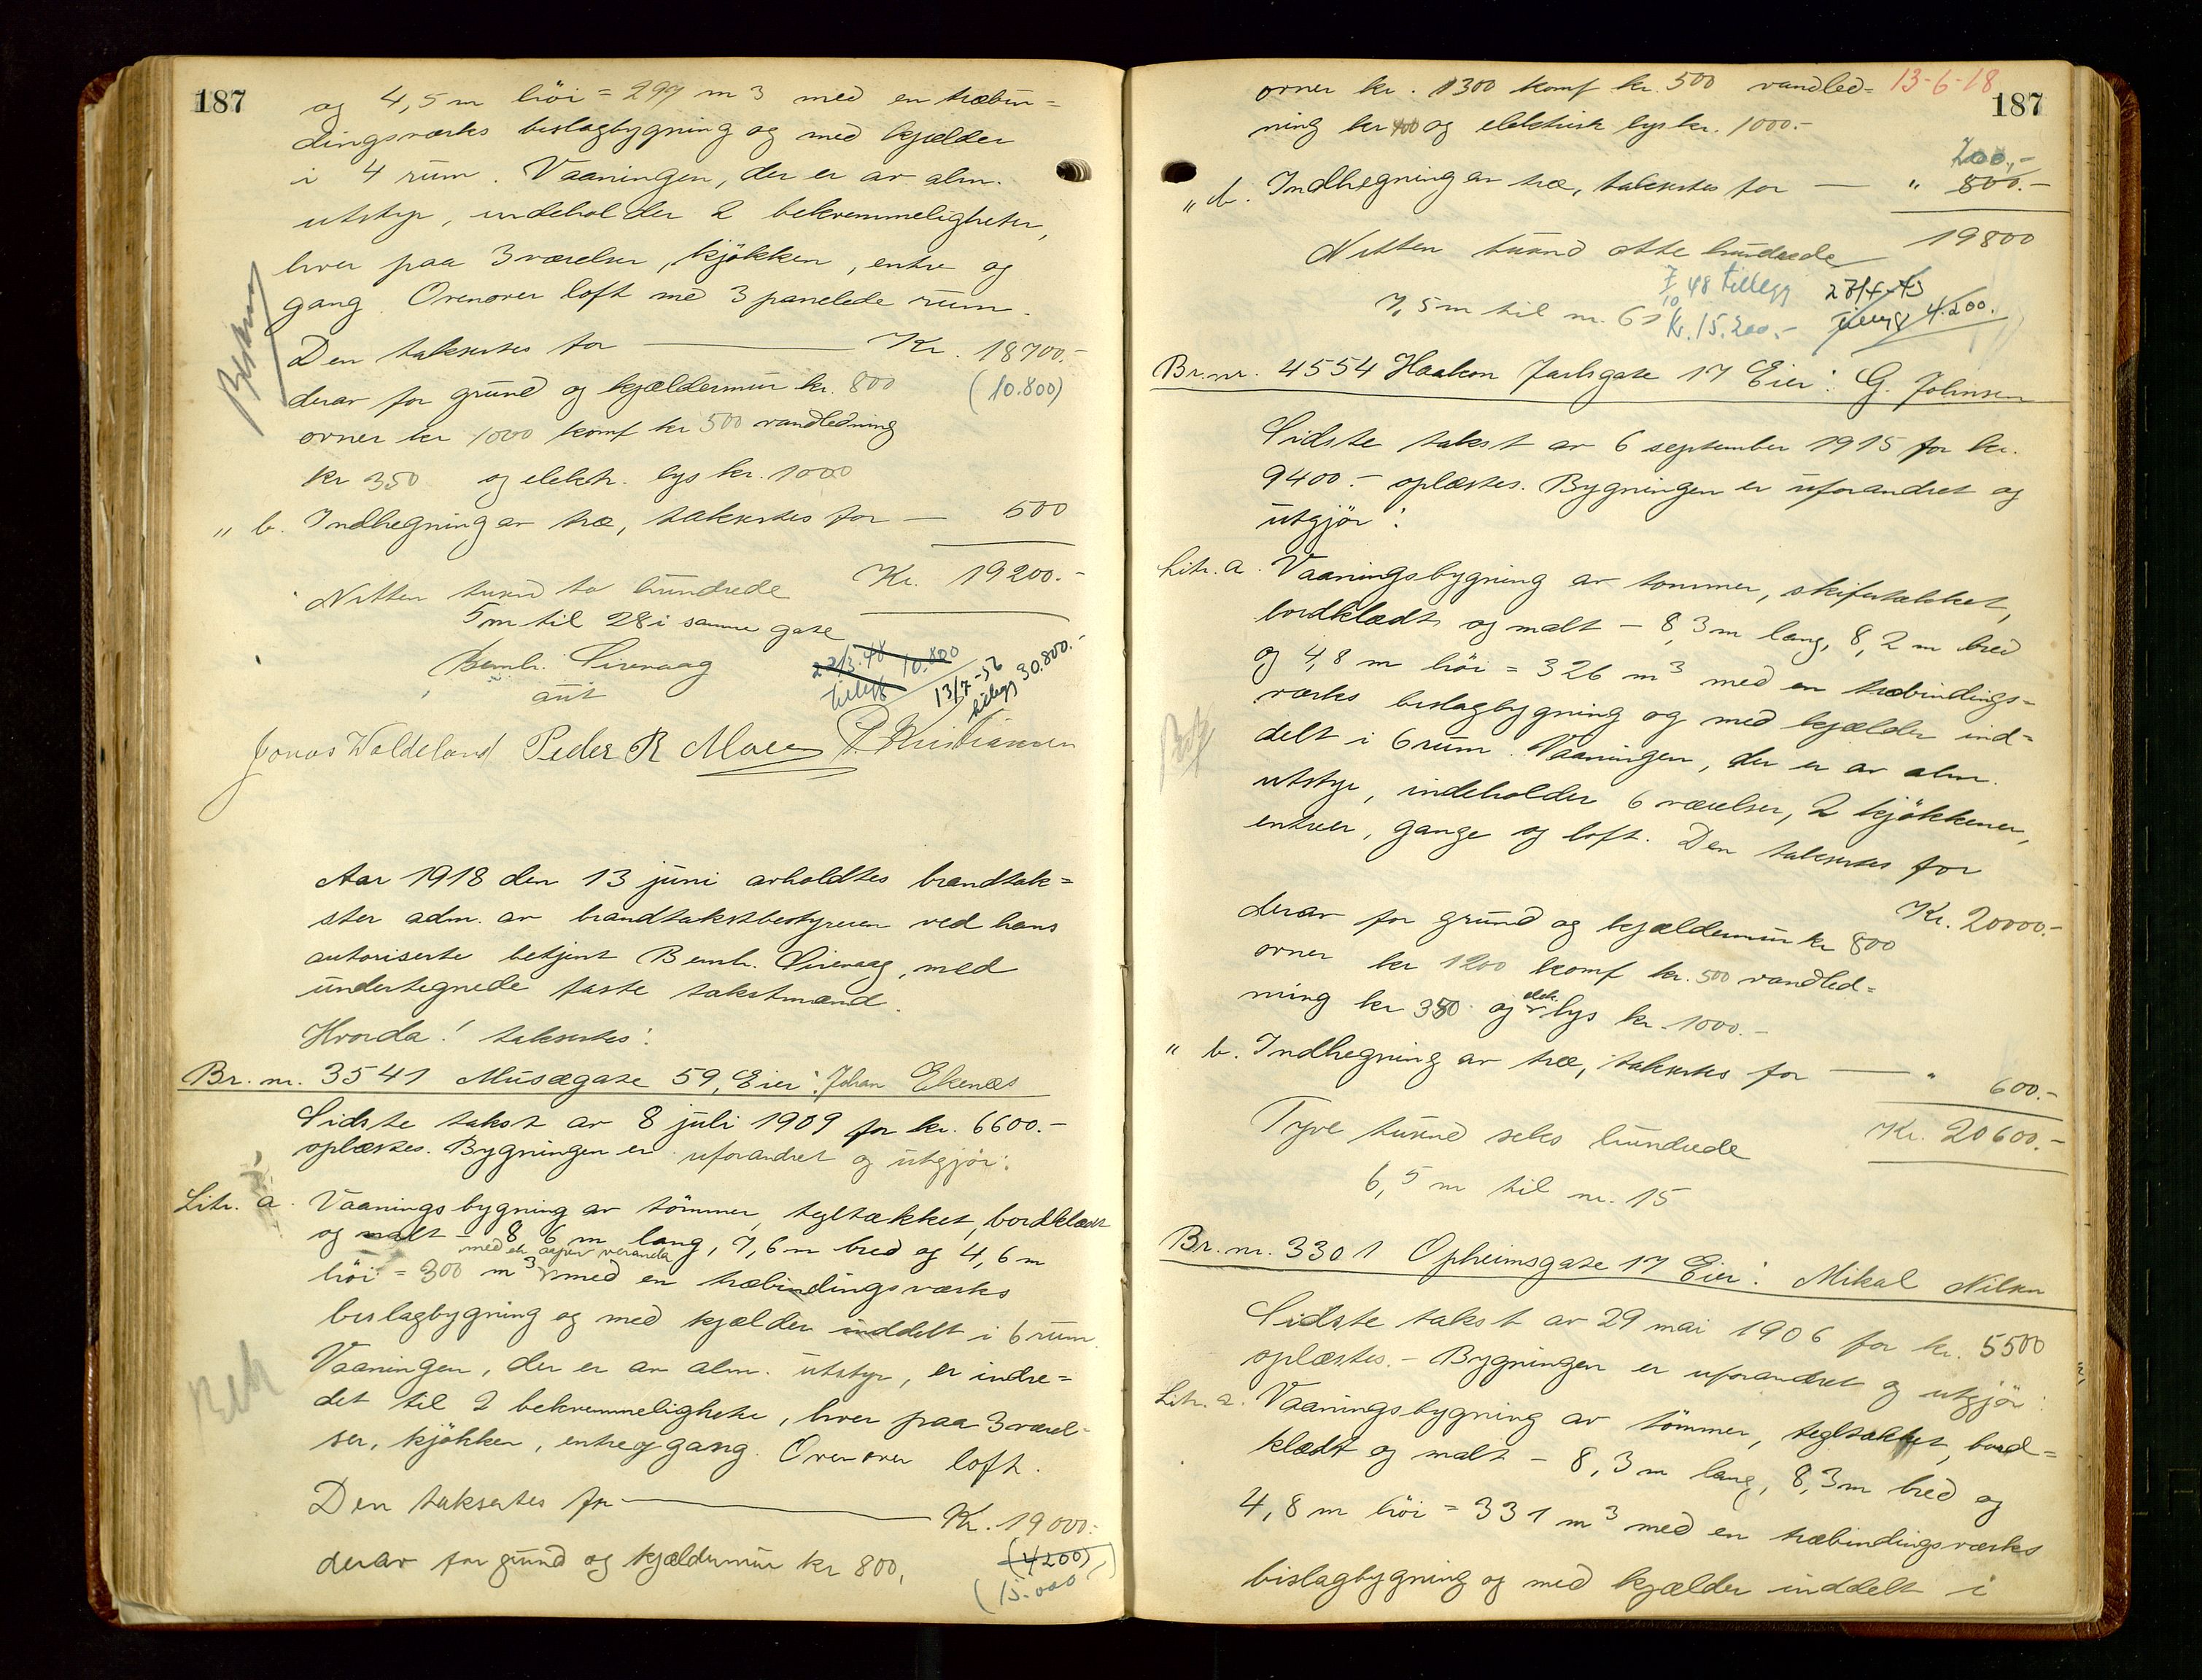 187
og 4,5 m höi = 299 m3 med en træbin=
dingsverks beslagbygning og med kjælder
i 4 rum. Vaaningen, der er av alm.
utstyr, indeholder 2 bekvemmeligheter,
hver paa 3 værelser, kjökken, entre og
gang. Ovenover loft med 3 panelede rum.
Den takseres for — Kr. 18700.-
derav for grund og kjældermur kr. 800 (10.800)
ovner kr 1000 komf kr 500 vandledning
kr 350 og elektr. lys kr. 1000
" b. Indhegning av træ, takseres for — 500
Kr. 19200.-
Nitten tusend to hundrede
5 m til 28 i samme gate
Bernh. Sirevaag
aut
22/3.48 10.800
tillegg
13/7-56
tillegg 30.800.-
Jonas Waldeland Peder R Moe P. Kristiansen
Aar 1918 den 13 juni avholdtes brandtak=
ster adm. av brandtakstbestyreren ved hans
autoriserte betjent Bernh. Sirevaag, med
undertegnede faste takstmænd.
Hvorda! takseres:
Br. nr. 3541 Musægate 59, Eier: Johan Ekenæs
Sidste takst av 8 juli 1909 for kr. 6600.-
oplæstes. Bygningen er uforandret og utgjör:
Litr. a. Vaaningsbygning av tömmer, tegltækket, bordklædt
og malt – 8,6 m lang, 7,6 m bred og 4,6 m
med en aapen veranda
höi = 300 m3 med en træbindingsverks
beslagbygning og med kjælder inddelt i 6 rum.
Vaaningen, der er av alm. utstyr, er indre=
det til 2 bekvemmeligheter, hver paa 3 værel-
ser, kjökken, entre og gang. Ovenover loft.
Den takseres for — Kr. 19000.-
derav for grund og kjældermur kr 800, (4200)
(15.000)
13-6-18
187
ovner kr. 1300 komf kr. 500 vandled=
ning kr 400 og elektrisk lys kr. 1000.-
200.-
" b. Indhegning av træ, takseres for — " 800.-
19800
Nitten tusend otte hundrede
7,5 m til nr. 61
48 tillegg
Kr. 15.200.-
tillegg 4.200.
Br. nr. 4554 Haakon Jarlsgate 17 Eier: G. Johnsen
Sidste takst av 6 september 1915 for kr.
9400.- oplæstes. Bygningen er uforandret og
utgjör:
Litr. a. Vaaningsbygning av tømmer, skifertækket,
bordklædt og malt – 8,3 m lang, 8,2 m bred
og 4,8 m höi = 326 m3 med en træbindings=
verks beslagbygning og med kjælder ind=
delt i 6 rum. Vaaningen, der er av alm.
utstyr, indeholder 6 værelser, 2 kjökkener,
entreer, gange og loft. Den takseres for
Kr. 20000.-
derav for grund og kjældermur kr 800
ovner kr 1200 komf kr. 500 vandled=
ning kr 350 og elek. lys kr. 1000.-
" b. Indhegning av træ, takseres for — " 600.-
Kr. 20600.-
Tyve tusend seks hundrede
6,5 m til nr. 15
Br. nr. 3301 Opheimsgate 17 Eier: Mikal Nilsen
Sidste takst av 29 mai 1906 for kr. 5500
oplæstes. – Bygningen er uforandret og utgjör:
Litr. a. Vaaningsbygning av tömmer, tegltækket, bord=
klædt og malt – 8,3 m lang, 8,3 m bred og
4,8 m höi = 331 m3 med en træbindingsverks
bislagbygning og med kjælder inddelt i